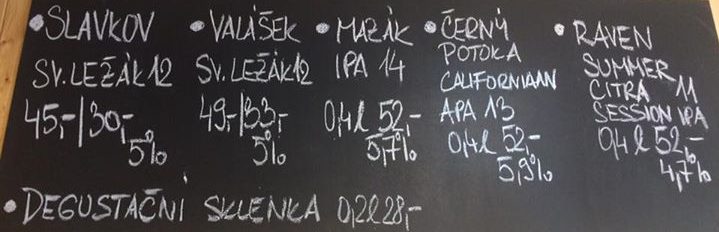 • SLAVKOV
SV. LEŽÁK 12
45,-/30,-
5%
• VALÁŠEK
SV. LEŽÁK 12
49,-/33,-
5%
• MAZÁK
IPA 14
0,4l 52,-
5,7%
• ČERNÝ
POTOKA
CALIFORNIAAN
APA 13
0,4l 52,-
5,9%
• RAVEN
SUMMER
CITRA 11
SESSION IPA
0,4l 52,-
4,7%
• DEGUSTAČNÍ SKLENKA 0,2l 28,-